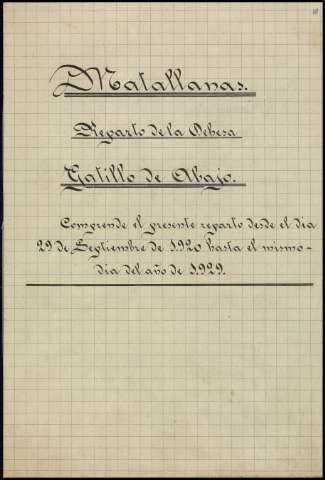 Matallanas.
Reparto de la Dehesa
Gatillo de Abajo.
Comprende el presente reparto desde el dia
29 de Septiembre de 1.920 hasta el mismo-
dia del año de 1.929.